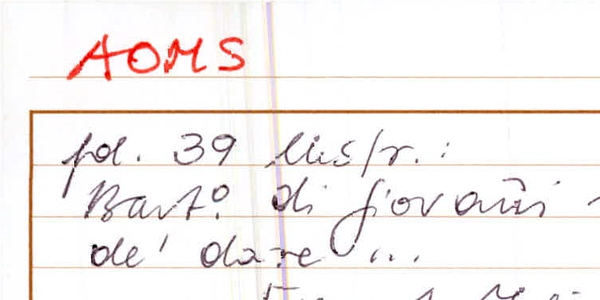 AOMS
fol. 39
Bart.º di Giovañi
de' dare ...